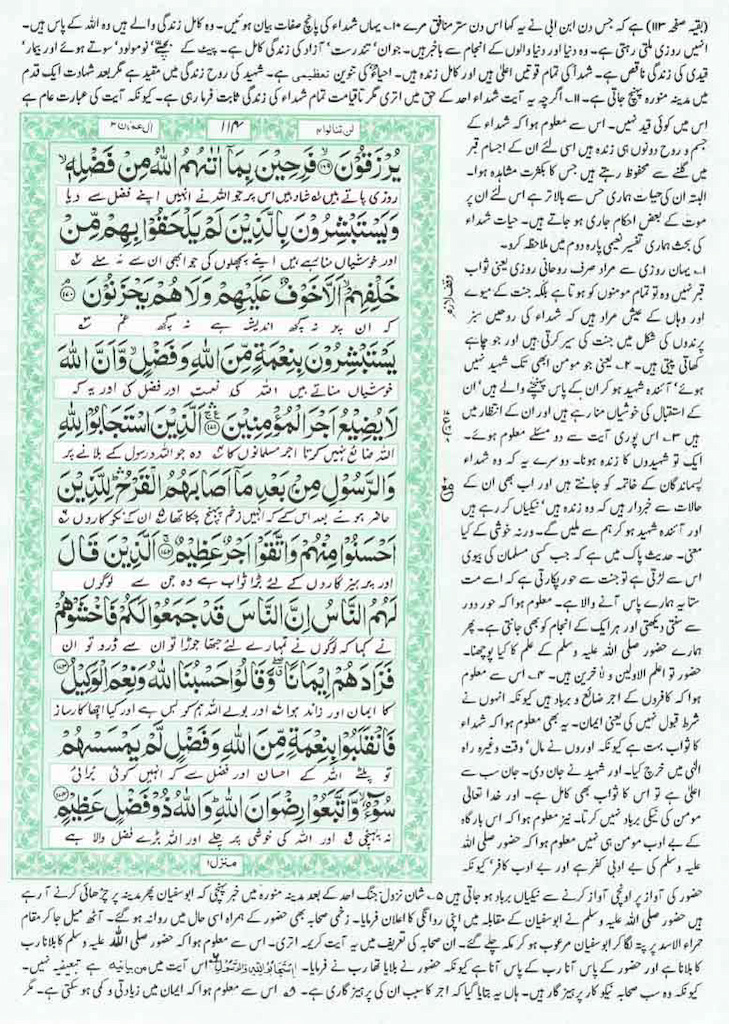 (بقیہ صفحہ ۱۱۳) ہے کہ جس دن ابن ابی نے یہ کہا اس دن ستر منافق مرے ۱۰۔ یہاں شہداء کی پانچ صفات بیان ہوئیں۔ وہ کامل زندگی والے ہیں وہ اللہ کے پاس ہیں۔
انہیں روزی ملتی رہتی ہے۔ وہ دنیا اور دنیا والوں کے انجام سے باخبر ہیں۔ جوان' تندرست' آزاد کی زندگی کامل ہے۔ پیٹ کے بچے' نومولود' سوتے ہوئے اور بیمار'
قیدی کی زندگی ناقص ہے۔ شہدا کی تمام قوتیں اعلیٰ ہیں اور کامل زندہ ہیں۔ احیاءٌ کی تنوین تعظیمی ہے۔ شہید کی روح زندگی میں مقید ہے مگر بعد شہادت ایک قدم
میں مدینہ منورہ پہنچ جاتی ہے۔ ۱۱۔ اگرچہ یہ آیت شہداء احد کے حق میں اتری مگر تاقیامت تمام شہداء کی زندگی ثابت فرما رہی ہے۔ کیونکہ آیت کی عبارت عام ہے
اس میں کوئی قید نہیں۔ اس سے معلوم ہوا کہ شہداء کے
جسم و روح دونوں ہی زندہ ہیں اسی لئے ان کے اجسام قبر
میں گلنے سے محفوظ رہتے ہیں جس کا بکثرت مشاہدہ ہوا۔
البتہ ان کی حیات ہماری حس سے بالاتر ہے اس لئے ان پر
موت کے بعض احکام جاری ہو جاتے ہیں۔ حیات شہداء
کی بحث ہماری تفسیر نعیمی پارہ دوم میں ملاحظہ کرو۔
۱۔ یہاں روزی سے مراد صرف روحانی روزی یعنی ثواب
قبر نہیں وہ تو تمام مومنوں کو ہوتا ہے بلکہ جنت کے میوے
اور وہاں کے عیش مراد ہیں کہ شہداء کی روحیں سبز
پرندوں کی شکل میں جنت کی سیر کرتی ہیں اور جو چاہے
کھاتی پیتی ہیں۔ ۲۔ یعنی جو مومن ابھی تک شہید نہیں
ہوئے' آئندہ شہید ہو کر ان کے پاس پہنچنے والے ہیں' ان
کے استقبال کی خوشیاں منا رہے ہیں اور ان کے انتظار میں
ہیں ۳۔ اس پوری آیت سے دو مسئلے معلوم ہوئے۔
ایک تو شہیدوں کا زندہ ہونا۔ دوسرے یہ کہ وہ شہداء
پسماندگان کے خاتمہ کو جانتے ہیں اور اب بھی ان کے
حالات سے خبردار ہیں کہ وہ زندہ ہیں' نیکیاں کر رہے ہیں
اور آئندہ شہید ہو کر ہم سے ملیں گے۔ ورنہ خوشی کے کیا
معنی۔ حدیث پاک میں ہے کہ جب کسی مسلمان کی بیوی
اس سے لڑتی ہے تو جنت سے حور پکارتی ہے کہ اسے مت
ستا یہ ہمارے پاس آنے والا ہے۔ معلوم ہوا کہ حور دور
سے سنتی دیکھتی اور ہر ایک کے انجام کو بھی جانتی ہے۔ پھر
ہمارے حضور صلی اللہ علیہ وسلم کے علم کا کیا پوچھنا۔
حضور تو اعلم الاولین و الاخرین ہیں۔ ۴۔ اس سے معلوم
ہوا کہ کافروں کے اجر ضائع و برباد ہیں کیونکہ انہوں نے
شرط قبول نہیں کی یعنی ایمان۔ یہ بھی معلوم ہوا کہ شہداء
کا ثواب بہت ہے کیونکہ اوروں نے مال' وقت وغیرہ راہ
الٰہی میں خرچ کیا۔ اور شہید نے جان دی۔ جان سب سے
اعلیٰ ہے تو اس کا ثواب بھی کامل ہے۔ اور خدا تعالیٰ
مومن کی نیکی برباد نہیں کرتا۔ نیز معلوم ہوا کہ اس بارگاہ
کے بے ادب مومن ہی نہیں معلوم ہوا کہ حضور صلی اللہ
علیہ وسلم کی بے ادبی کفر ہے اور بے ادب کافر' کیونکہ
لن تنالوا ۴ ۱۱۴ اٰل عمرٰن ۳
يُرْزَقُوْنَ ﴿۱۶۹﴾ فَرِحِيْنَ بِمَاۤ اٰتٰىهُمُ اللّٰهُ مِنْ فَضْلِهٖ ۙ
روزی پاتے ہیں شاد ہیں اس پر جو اللہ نے انہیں اپنے فضل سے دیا
وَيَسْتَبْشِرُوْنَ بِالَّذِيْنَ لَمْ يَلْحَقُوْا بِهِمْ مِّنْ
اور خوشیاں منا رہے ہیں اپنے پچھلوں کی جو ابھی ان سے نہ ملے
خَلْفِهِمْ ۙ اَلَّا خَوْفٌ عَلَيْهِمْ وَلَا هُمْ يَحْزَنُوْنَ ﴿۱۷۰﴾
کہ ان پر نہ کچھ اندیشہ ہے نہ کچھ غم
يَسْتَبْشِرُوْنَ بِنِعْمَةٍ مِّنَ اللّٰهِ وَفَضْلٍ ۙ وَّاَنَّ اللّٰهَ
خوشیاں مناتے ہیں اللہ کی نعمت اور فضل کی اور یہ کہ
لَا يُضِيْعُ اَجْرَ الْمُؤْمِنِيْنَ ﴿۱۷۱﴾ اَلَّذِيْنَ اسْتَجَابُوْا لِلّٰهِ
اللہ ضائع نہیں کرتا اجر مسلمانوں کا وہ جو اللہ و رسول کے بلانے پر
وَالرَّسُوْلِ مِنْ بَعْدِ مَاۤ اَصَابَهُمُ الْقَرْحُ ۛ لِلَّذِيْنَ
حاضر ہوئے بعد اس کے کہ انہیں زخم پہنچ چکا تھا ان کے نکوکاروں
اَحْسَنُوْا مِنْهُمْ وَاتَّقَوْا اَجْرٌ عَظِيْمٌ ﴿۱۷۲﴾ اَلَّذِيْنَ قَالَ
اور پرہیزگاروں کے لئے بڑا ثواب ہے وہ جن سے لوگوں
لَهُمُ النَّاسُ اِنَّ النَّاسَ قَدْ جَمَعُوْا لَكُمْ فَاخْشَوْهُمْ
نے کہا کہ لوگوں نے تمہارے لئے جتھا جوڑا تو ان سے ڈرو تو ان
فَزَادَهُمْ اِيْمَانًا ۖ وَّقَالُوْا حَسْبُنَا اللّٰهُ وَنِعْمَ الْوَكِيْلُ ﴿۱۷۳﴾
کا ایمان اور زائد ہوا اور بولے اللہ ہم کو بس ہے اور کیا اچھا کارساز
فَانْقَلَبُوْا بِنِعْمَةٍ مِّنَ اللّٰهِ وَفَضْلٍ لَّمْ يَمْسَسْهُمْ
تو پلٹے اللہ کے احسان اور فضل سے کہ انہیں کوئی برائی
سُوْٓءٌ ۙ وَّاتَّبَعُوْا رِضْوَانَ اللّٰهِ ؕ وَاللّٰهُ ذُوْ فَضْلٍ عَظِيْمٍ ﴿۱۷۴﴾
نہ پہنچی اور اللہ کی خوشی پر چلے اور اللہ بڑے فضل والا ہے
منزل ۱
وقف لازم
حضور کی آواز پر اونچی آواز کرنے سے نیکیاں برباد ہو جاتی ہیں ۵۔ شان نزول۔ جنگ احد کے بعد مدینہ منورہ میں خبر پہنچی کہ ابوسفیان پھر مدینہ پر چڑھائی کرنے آ رہے
ہیں حضور صلی اللہ علیہ وسلم نے ابوسفیان کے مقابلہ میں اپنی روانگی کا اعلان فرمایا۔ زخمی صحابہ بھی حضور کے ہمراہ اسی حال میں روانہ ہو گئے۔ آٹھ میل جا کر مقام
حمراء الاسد پر پتہ لگا کر ابوسفیان مرعوب ہو کر مکہ چلے گئے۔ ان صحابہ کی تعریف میں یہ آیت کریمہ اتری۔ اس سے معلوم ہوا کہ حضور صلی اللہ علیہ وسلم کا بلانا رب
کا بلانا ہے اور حضور کے پاس آنا رب کے پاس آنا ہے کیونکہ حضور نے بلایا تھا رب نے فرمایا۔ اِسْتَجَابُوْا لِلّٰهِ وَالرَّسُوْلِ ۶۔ اس آیت میں من بیانیہ ہے تبعیضیہ نہیں۔
کیونکہ وہ سب صحابہ نیکو کار پرہیز گار ہیں۔ ہاں یہ بتایا گیا کہ اجر کا سبب ان کی پرہیز گاری ہے۔ ۷۔ اس سے معلوم ہوا کہ ایمان میں زیادتی و کمی ہو سکتی ہے۔ مگر